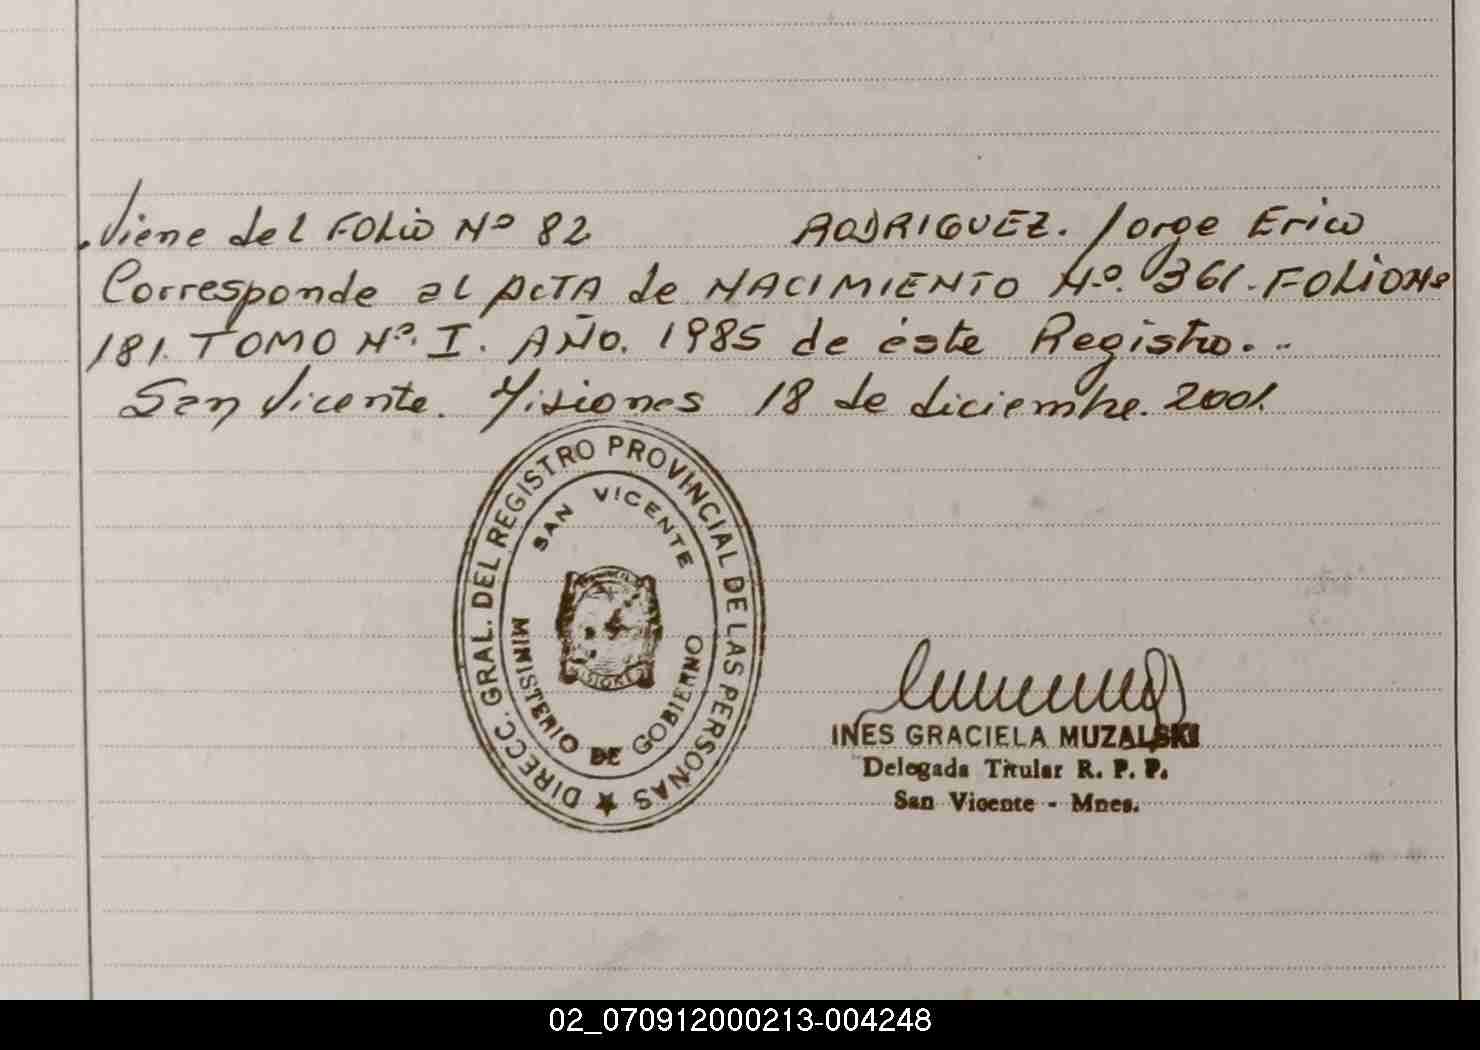 Viene del FOLIO Nº 82 RODRIGUEZ. Jorge Erico
Corresponde al ACTA de NACIMIENTO Nº. 361. FOLIO Nº
181. TOMO Nº. I. AÑO. 1985 de éste Registro. . .
San Vicente. Misiones 18 de diciembre. 2001.
DIRECC. GRAL. DEL REGISTRO PROVINCIAL DE LAS PERSONAS
SAN VICENTE
MINISTERIO DE GOBIERNO
MISIONES
INES GRACIELA MUZALSKI
Delegada Titular R. P. P.
San Vicente - Mnes.
02_070912000213-004248